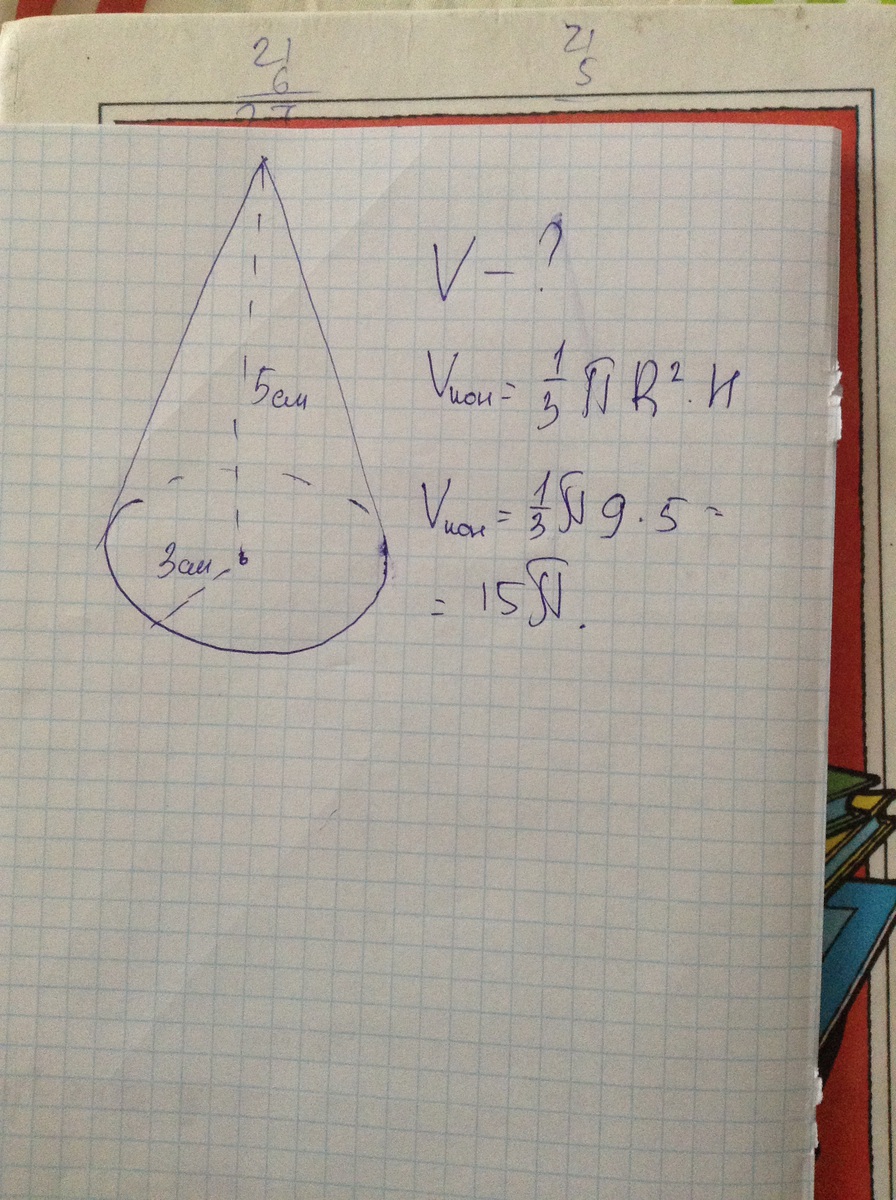 21
6
27
21
5
5см
3см
V - ?
Vкон = 1/3 π R². H
Vкон = 1/3 π 9 . 5 =
= 15π.